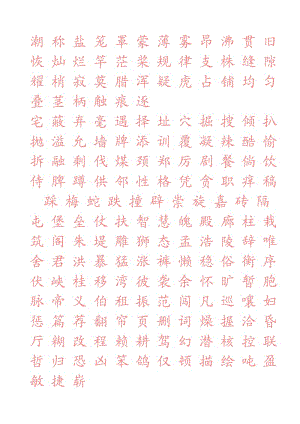 潮 称 盐 笼 罩 蒙 薄 雾 昂 沸 贯 旧
恢 灿 烂 竿 茫 菜 规 律 支 株 缝 隙
耀 梢 寂 莫 腊 浑 疑 虎 占 铺 均 匀
叠 茎 柄 触 痕 逐
宅 蔽 弃 毫 遇 择 址 穴 掘 搜 倾 扒
抛 溢 允 墙 牌 添 训 覆 凝 辣 酷 愉
拆 融 剩 伐 煤 颈 郑 厉 剧 餐 倘 饮
侍 脾 蹲 供 邻 性 格 凭 贪 职 痒 稿
踩 梅 蛇 跌 撞 辟 崇 旋 嘉 砖 隔
屯 堡 垒 仗 扶 智 慧 魄 殿 廊 柱 栽
筑 阁 朱 堤 雕 狮 态 孟 浩 陵 辞 唯
舍 君 洪 暴 猛 涨 裤 懒 稳 俗 衡 序
伏 峡 桂 移 湾 披 袭 余 怀 旷 暂 胞
脉 帝 义 伯 租 振 范 闻 凡 巡 嚷 妇
惩 篇 荐 翻 帘 页 删 词 燥 握 洽 昏
厅 糊 改 程 赖 耕 驾 幻 潜 核 控 联
哲 归 恐 凶 笨 鸽 仅 顿 描 绘 吨 盈
敏 捷 崭